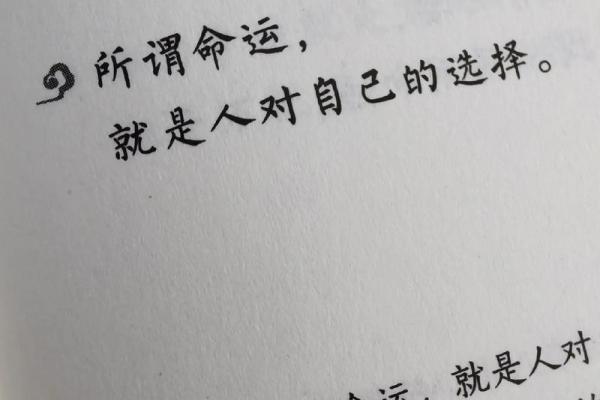 所谓命运，
就是人对自己的选择。
命运，就是人对